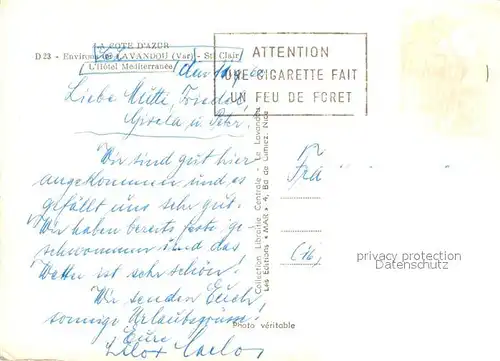 LA COTE D'AZUR
D 23 - Environs du LAVANDOU (Var) - St Clair
L'Hôtel Méditerranée
ATTENTION
UNE CIGARETTE FAIT
UN FEU DE FORET
Liebe Mutti,
Gisela u. Peter.
Wir sind gut hier
angekommen und es
gefällt uns sehr gut.
Wir haben bereits feste ge-
schwommen und das
Wetter ist sehr schön!
Wir senden Euch
sonnige Urlaubsgrüsse!
Eure
Collection Librairie Centrale - Le Lavandou
Les Editions "MAR", 4, Bd de Cimiez, Nice
Photo véritable
privacy protection
Datenschutz